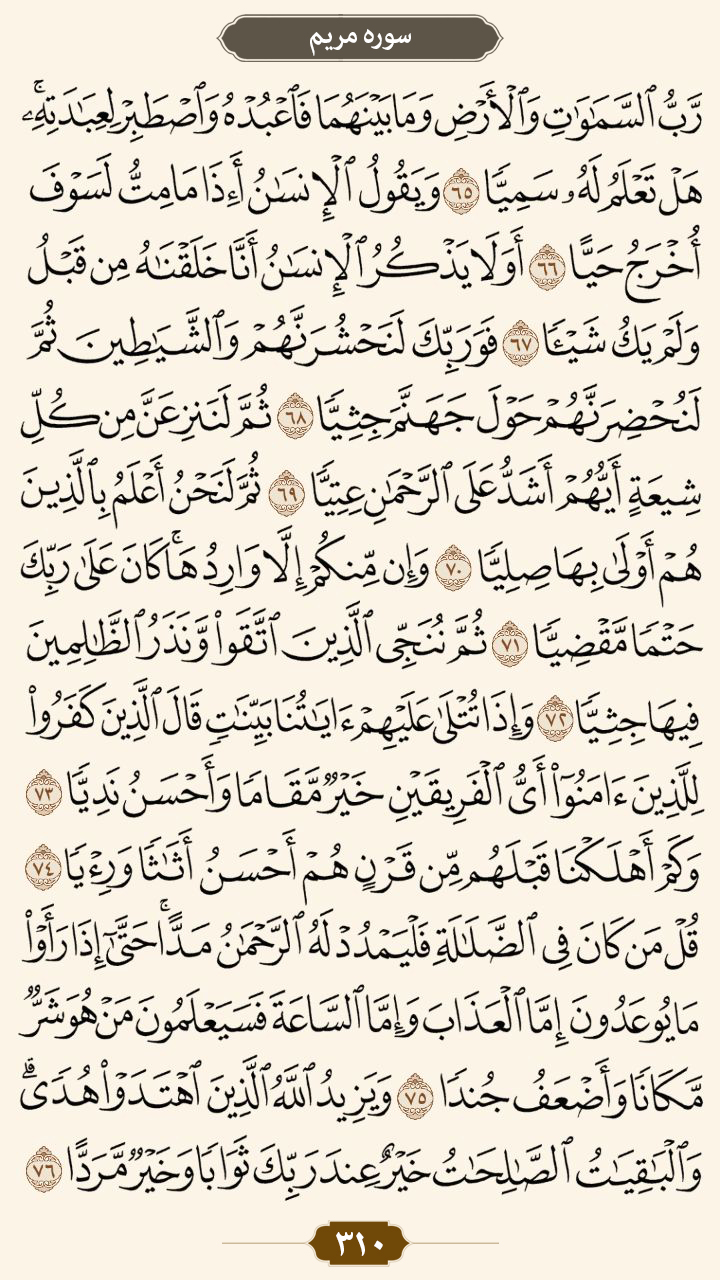 سوره مریم
رَّبُّ ٱلسَّمَٰوَٰتِ وَٱلۡأَرۡضِ وَمَا بَيۡنَهُمَا فَٱعۡبُدۡهُ وَٱصۡطَبِرۡ لِعِبَٰدَتِهِۦۚ
هَلۡ تَعۡلَمُ لَهُۥ سَمِيّٗا ٦٥ وَيَقُولُ ٱلۡإِنسَٰنُ أَءِذَا مَا مِتُّ لَسَوۡفَ
أُخۡرَجُ حَيًّا ٦٦ أَوَلَا يَذۡكُرُ ٱلۡإِنسَٰنُ أَنَّا خَلَقۡنَٰهُ مِن قَبۡلُ
وَلَمۡ يَكُ شَيۡـٔٗا ٦٧ فَوَرَبِّكَ لَنَحۡشُرَنَّهُمۡ وَٱلشَّيَٰطِينَ ثُمَّ
لَنُحۡضِرَنَّهُمۡ حَوۡلَ جَهَنَّمَ جِثِيّٗا ٦٨ ثُمَّ لَنَنزِعَنَّ مِن كُلِّ
شِيعَةٍ أَيُّهُمۡ أَشَدُّ عَلَى ٱلرَّحۡمَٰنِ عِتِيّٗا ٦٩ ثُمَّ لَنَحۡنُ أَعۡلَمُ بِٱلَّذِينَ
هُمۡ أَوۡلَىٰ بِهَا صِلِيّٗا ٧٠ وَإِن مِّنكُمۡ إِلَّا وَارِدُهَاۚ كَانَ عَلَىٰ رَبِّكَ
حَتۡمٗا مَّقۡضِيّٗا ٧١ ثُمَّ نُنَجِّي ٱلَّذِينَ ٱتَّقَواْ وَّنَذَرُ ٱلظَّٰلِمِينَ
فِيهَا جِثِيّٗا ٧٢ وَإِذَا تُتۡلَىٰ عَلَيۡهِمۡ ءَايَٰتُنَا بَيِّنَٰتٖ قَالَ ٱلَّذِينَ كَفَرُواْ
لِلَّذِينَ ءَامَنُوٓاْ أَيُّ ٱلۡفَرِيقَيۡنِ خَيۡرٞ مَّقَامٗا وَأَحۡسَنُ نَدِيّٗا ٧٣
وَكَمۡ أَهۡلَكۡنَا قَبۡلَهُم مِّن قَرۡنٍ هُمۡ أَحۡسَنُ أَثَٰثٗا وَرِءۡيٗا ٧٤
قُلۡ مَن كَانَ فِي ٱلضَّلَٰلَةِ فَلۡيَمۡدُدۡ لَهُ ٱلرَّحۡمَٰنُ مَدًّاۚ حَتَّىٰٓ إِذَا رَأَوۡاْ
مَا يُوعَدُونَ إِمَّا ٱلۡعَذَابَ وَإِمَّا ٱلسَّاعَةَ فَسَيَعۡلَمُونَ مَنۡ هُوَ شَرّٞ
مَّكَانٗا وَأَضۡعَفُ جُندٗا ٧٥ وَيَزِيدُ ٱللَّهُ ٱلَّذِينَ ٱهۡتَدَوۡاْ هُدٗىۗ
وَٱلۡبَٰقِيَٰتُ ٱلصَّٰلِحَٰتُ خَيۡرٌ عِندَ رَبِّكَ ثَوَابٗا وَخَيۡرٞ مَّرَدًّا ٧٦
٣١٠